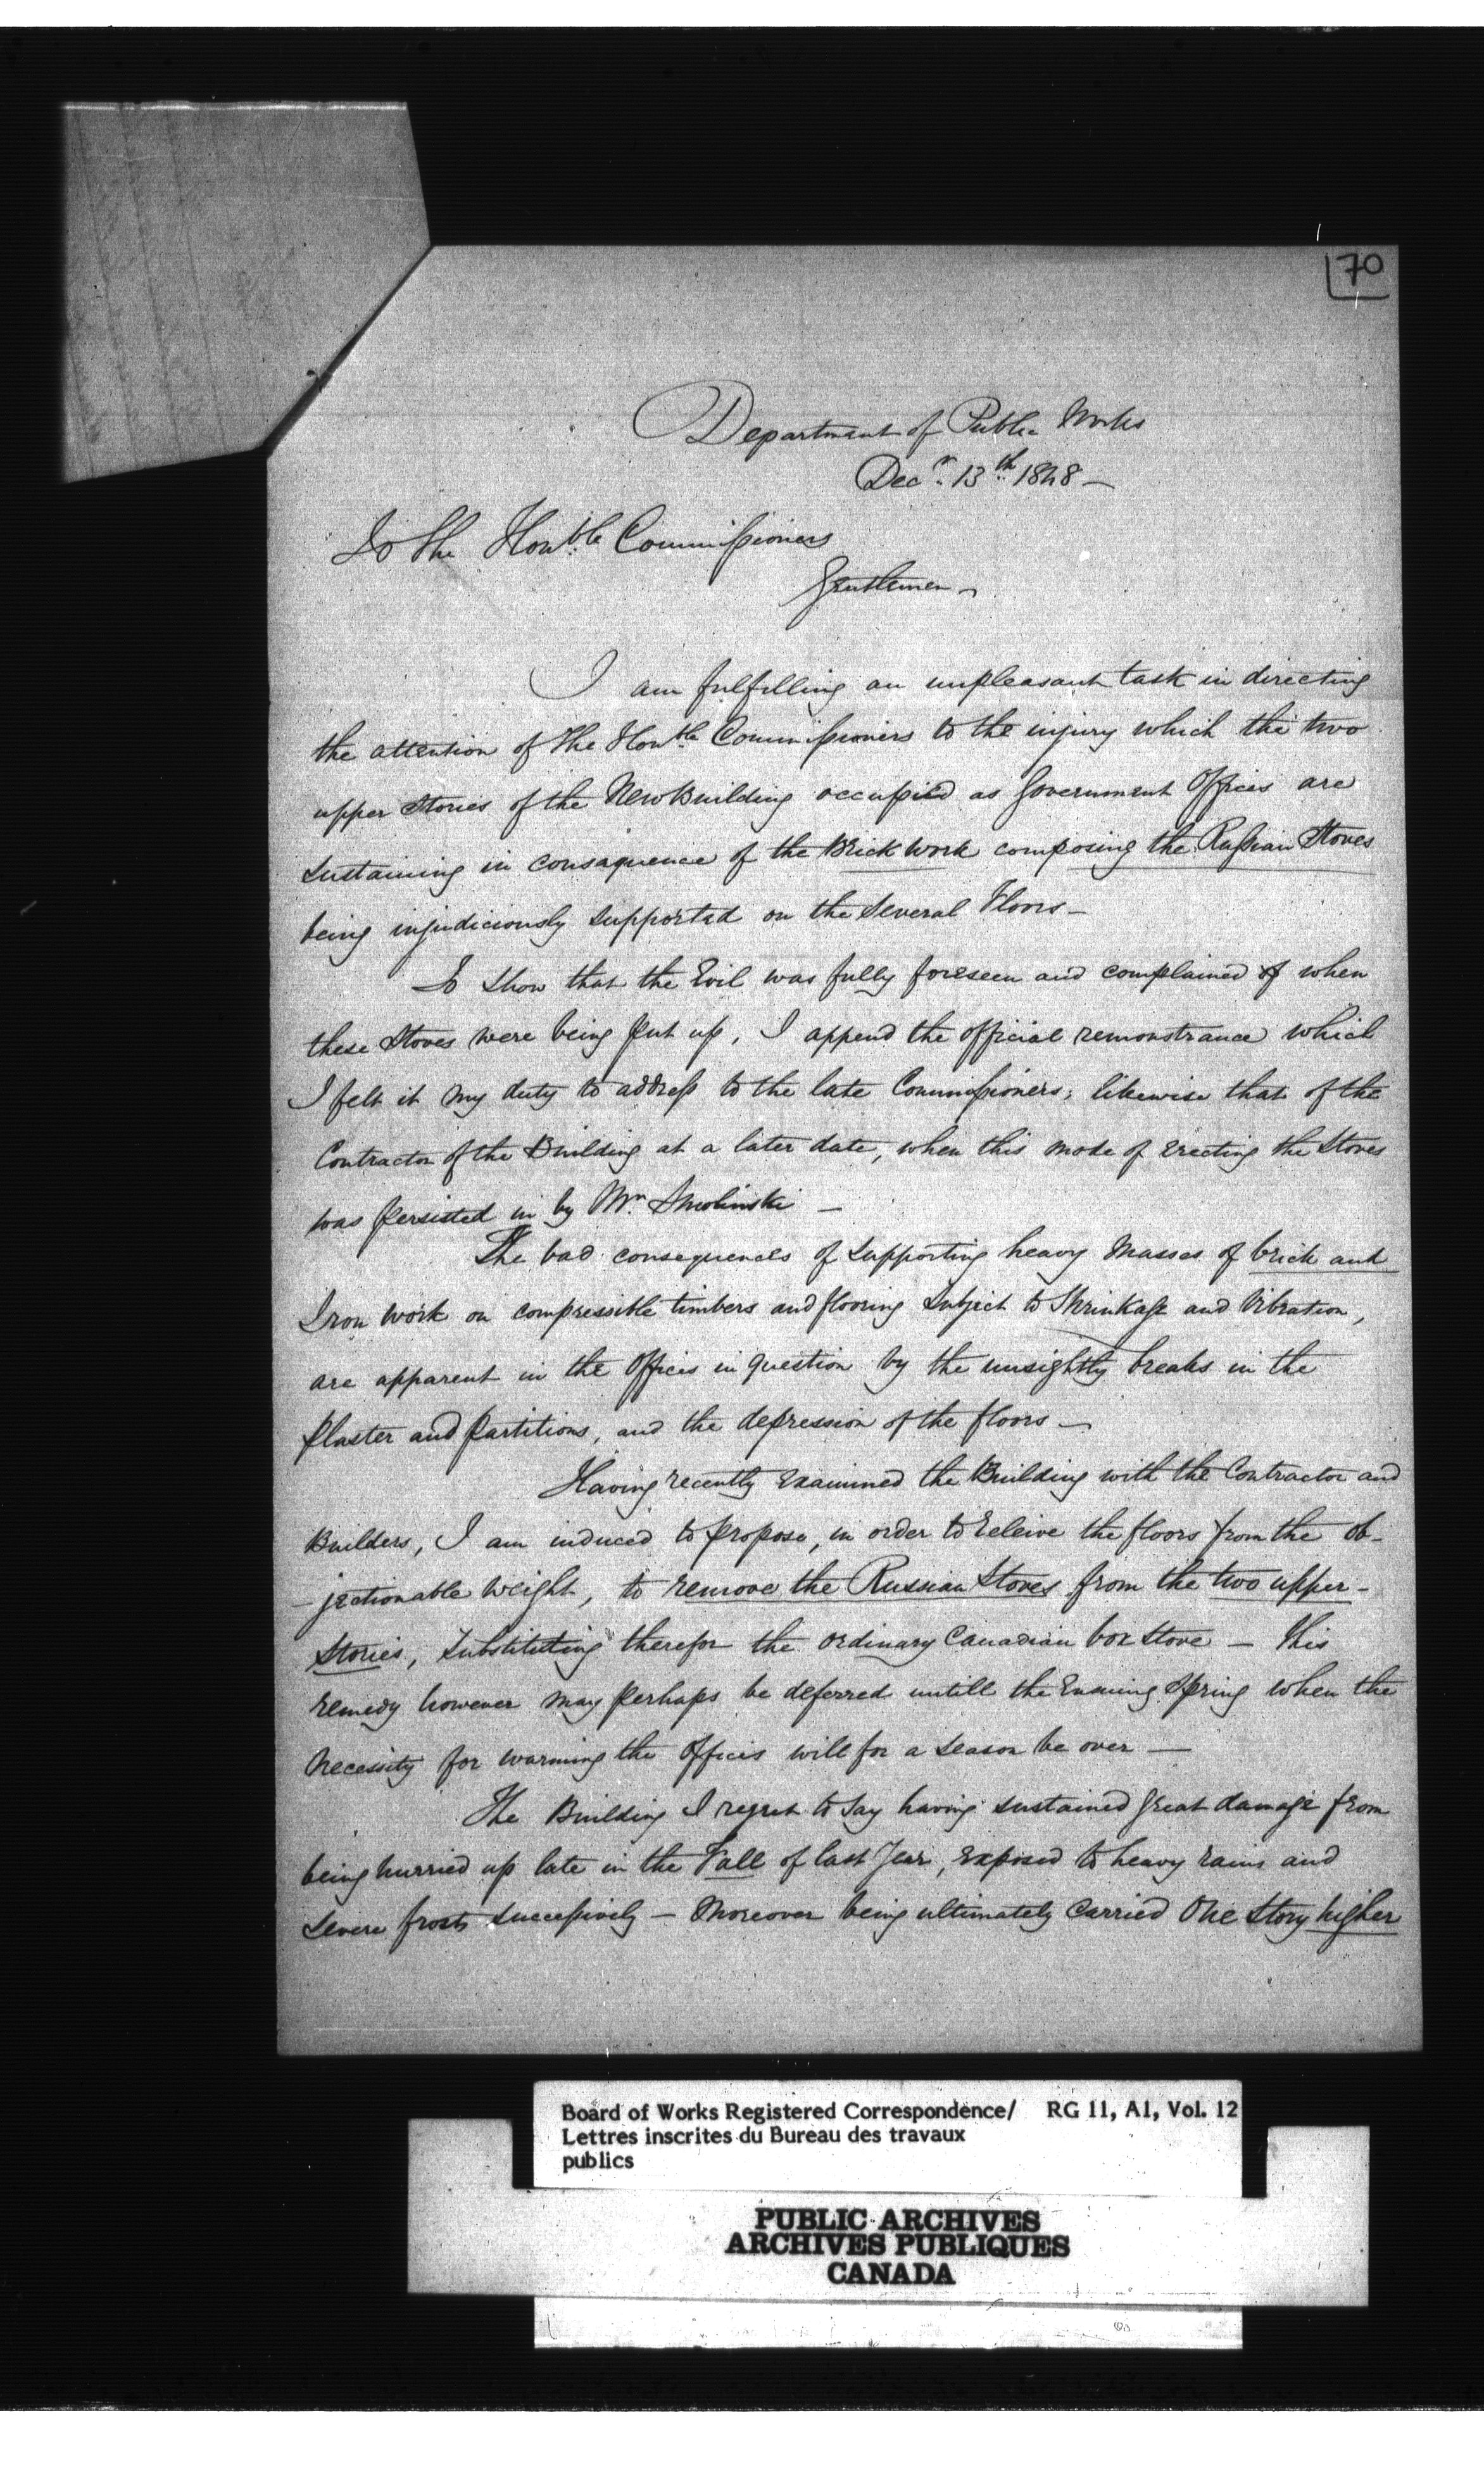 70
Department of Public Works
Decr. 13th 1848 —
To The Honble Commissioners
Gentlemen —
I am fulfilling an unpleasant task in directing
the attention of The Honble Commissioners to the injury which the two
upper Stories of the New Building occupied as Government Offices are
sustaining in consequence of the Brick work composing the Russian Stoves
being injudiciously supported on the several Floors —
To show that the Evil was fully foreseen and complained of when
these Stoves were being put up, I append the official remonstrance which
I felt it my duty to address to the late Commissioners; likewise that of the
Contractor of the Building at a later date, when this mode of erecting the Stoves
was persisted in by Mr. Smolinski —
The bad consequences of supporting heavy Masses of brick and
Iron work on compressible timbers and flooring subject to Shrinkage and Vibration,
are apparent in the Offices in question by the unsightly breaks in the
Plaster and Partitions, and the depression of the floors —
Having recently Examined the Building with the Contractor and
Builders, I am induced to propose, in order to releive the floors from the ob-
- jectionable weight, to remove the Russian Stoves from the two upper -
Stories, substituting therefor the ordinary Canadian box Stove — This
remedy however may perhaps be deferred untill the Ensuing Spring when the
necessity for warming the Offices will for a season be over —
The Building I regret to say having sustained great damage from
being hurried up late in the Fall of last Year, exposed to heavy rains and
severe frosts successively — Moreover being ultimately carried One Story higher
Board of Works Registered Correspondence/ RG 11, A1, Vol. 12
Lettres inscrites du Bureau des travaux
publics
PUBLIC ARCHIVES
ARCHIVES PUBLIQUES
CANADA